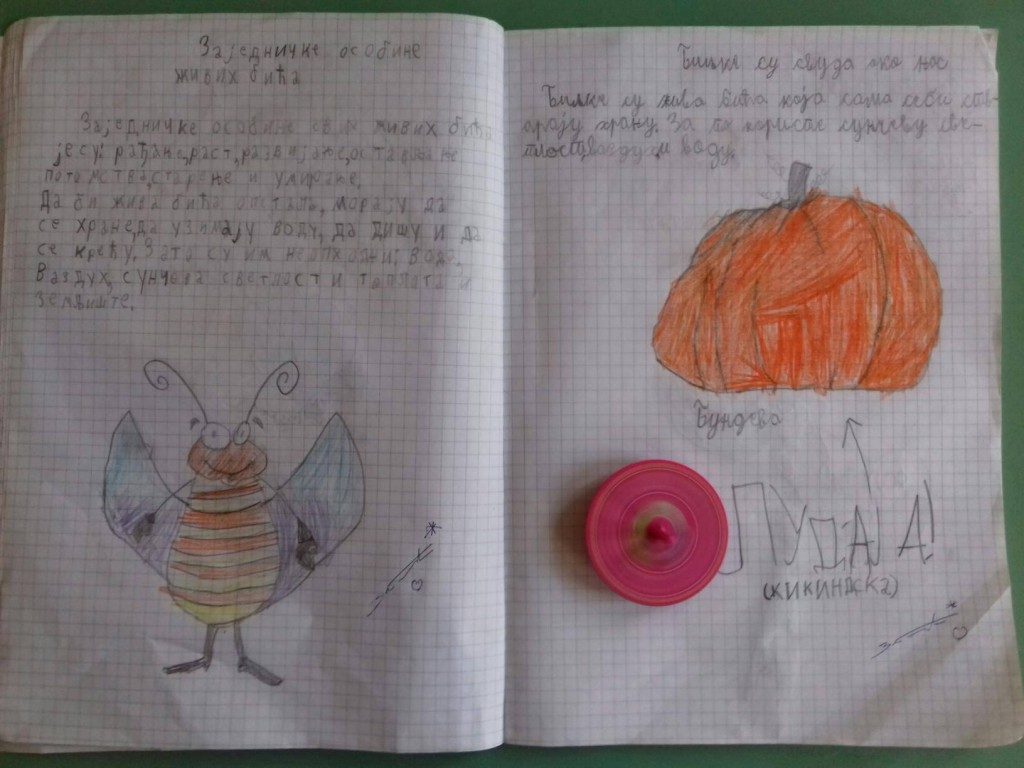 Заједничке особине
живих бића
Заједничке особине свих живих бића
јесу: рађање, раст, развијање, остављање
потомства, старење и умирање.
Да би жива бића опстала, морају да
се хране, да узимају воду, да дишу и да
се крећу. Зата су им неопходни: вода,
ваздух, сунчева светлост и топлота и
земљиште.
Биљке су свуда око нас
Биљке су жива бића која сама себи ств-
арају храну. За то користе сунчеву све-
тлост, ваздух и воду.
Бундева
ЛУДАЈА!
(КИКИНДСКА)